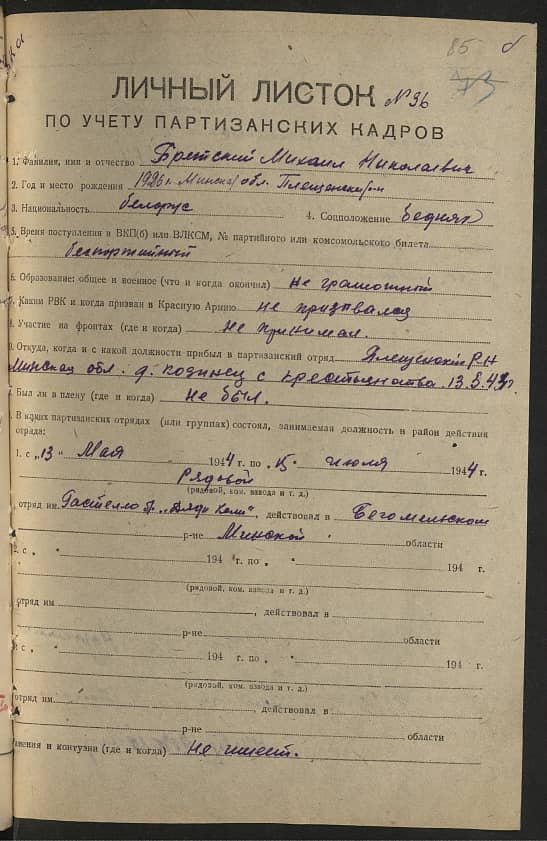 85
ЛИЧНЫЙ ЛИСТОК №96
ПО УЧЕТУ ПАРТИЗАНСКИХ КАДРОВ
1. Фамилия, имя и отчество Бретский Михаил Николаевич
2. Год и место рождения 1926 г. Минская обл. Плещенский р-н
3. Национальность белорус 4. Соцположение бедняк
5. Время поступления в ВКП(б) или ВЛКСМ, № партийного или комсомольского билета
беспортийный
6. Образование: общее и военное (что и когда окончил) не грамотный
7. Каким РВК и когда призван в Красную Армию не призвался
8. Участие на фронтах (где и когда) Не принимал.
9. Откуда, когда и с какой должности прибыл в партизанский отряд Плещенский Р-Н
Минская обл. д. с крестьянства. 13.5.43г
Был ли в плену (где и когда) Не был.
В каких партизанских отрядах (или группах) состоял, занимаемая должность и район действия
отряда:
1. с „13" Мая 1944 г. по 15 июля 1944 г.
Рядовой
(рядовой, ком. взвода и т. д.)
отряд им. Гастелло „Дяди Коли", действовал в Бегомельском
р-не Минской области
2. с „ " 194 г. по „ " 194 г.
(рядовой, ком. взвода и т. д.)
отряд им. , действовал в
р-не области
с „ " 194 г. по „ " 194 г.
(рядовой, ком. взвода и т. д.)
отряд им. , действовал в
р-не области
ранения и контузии (где и когда) Не имеет.